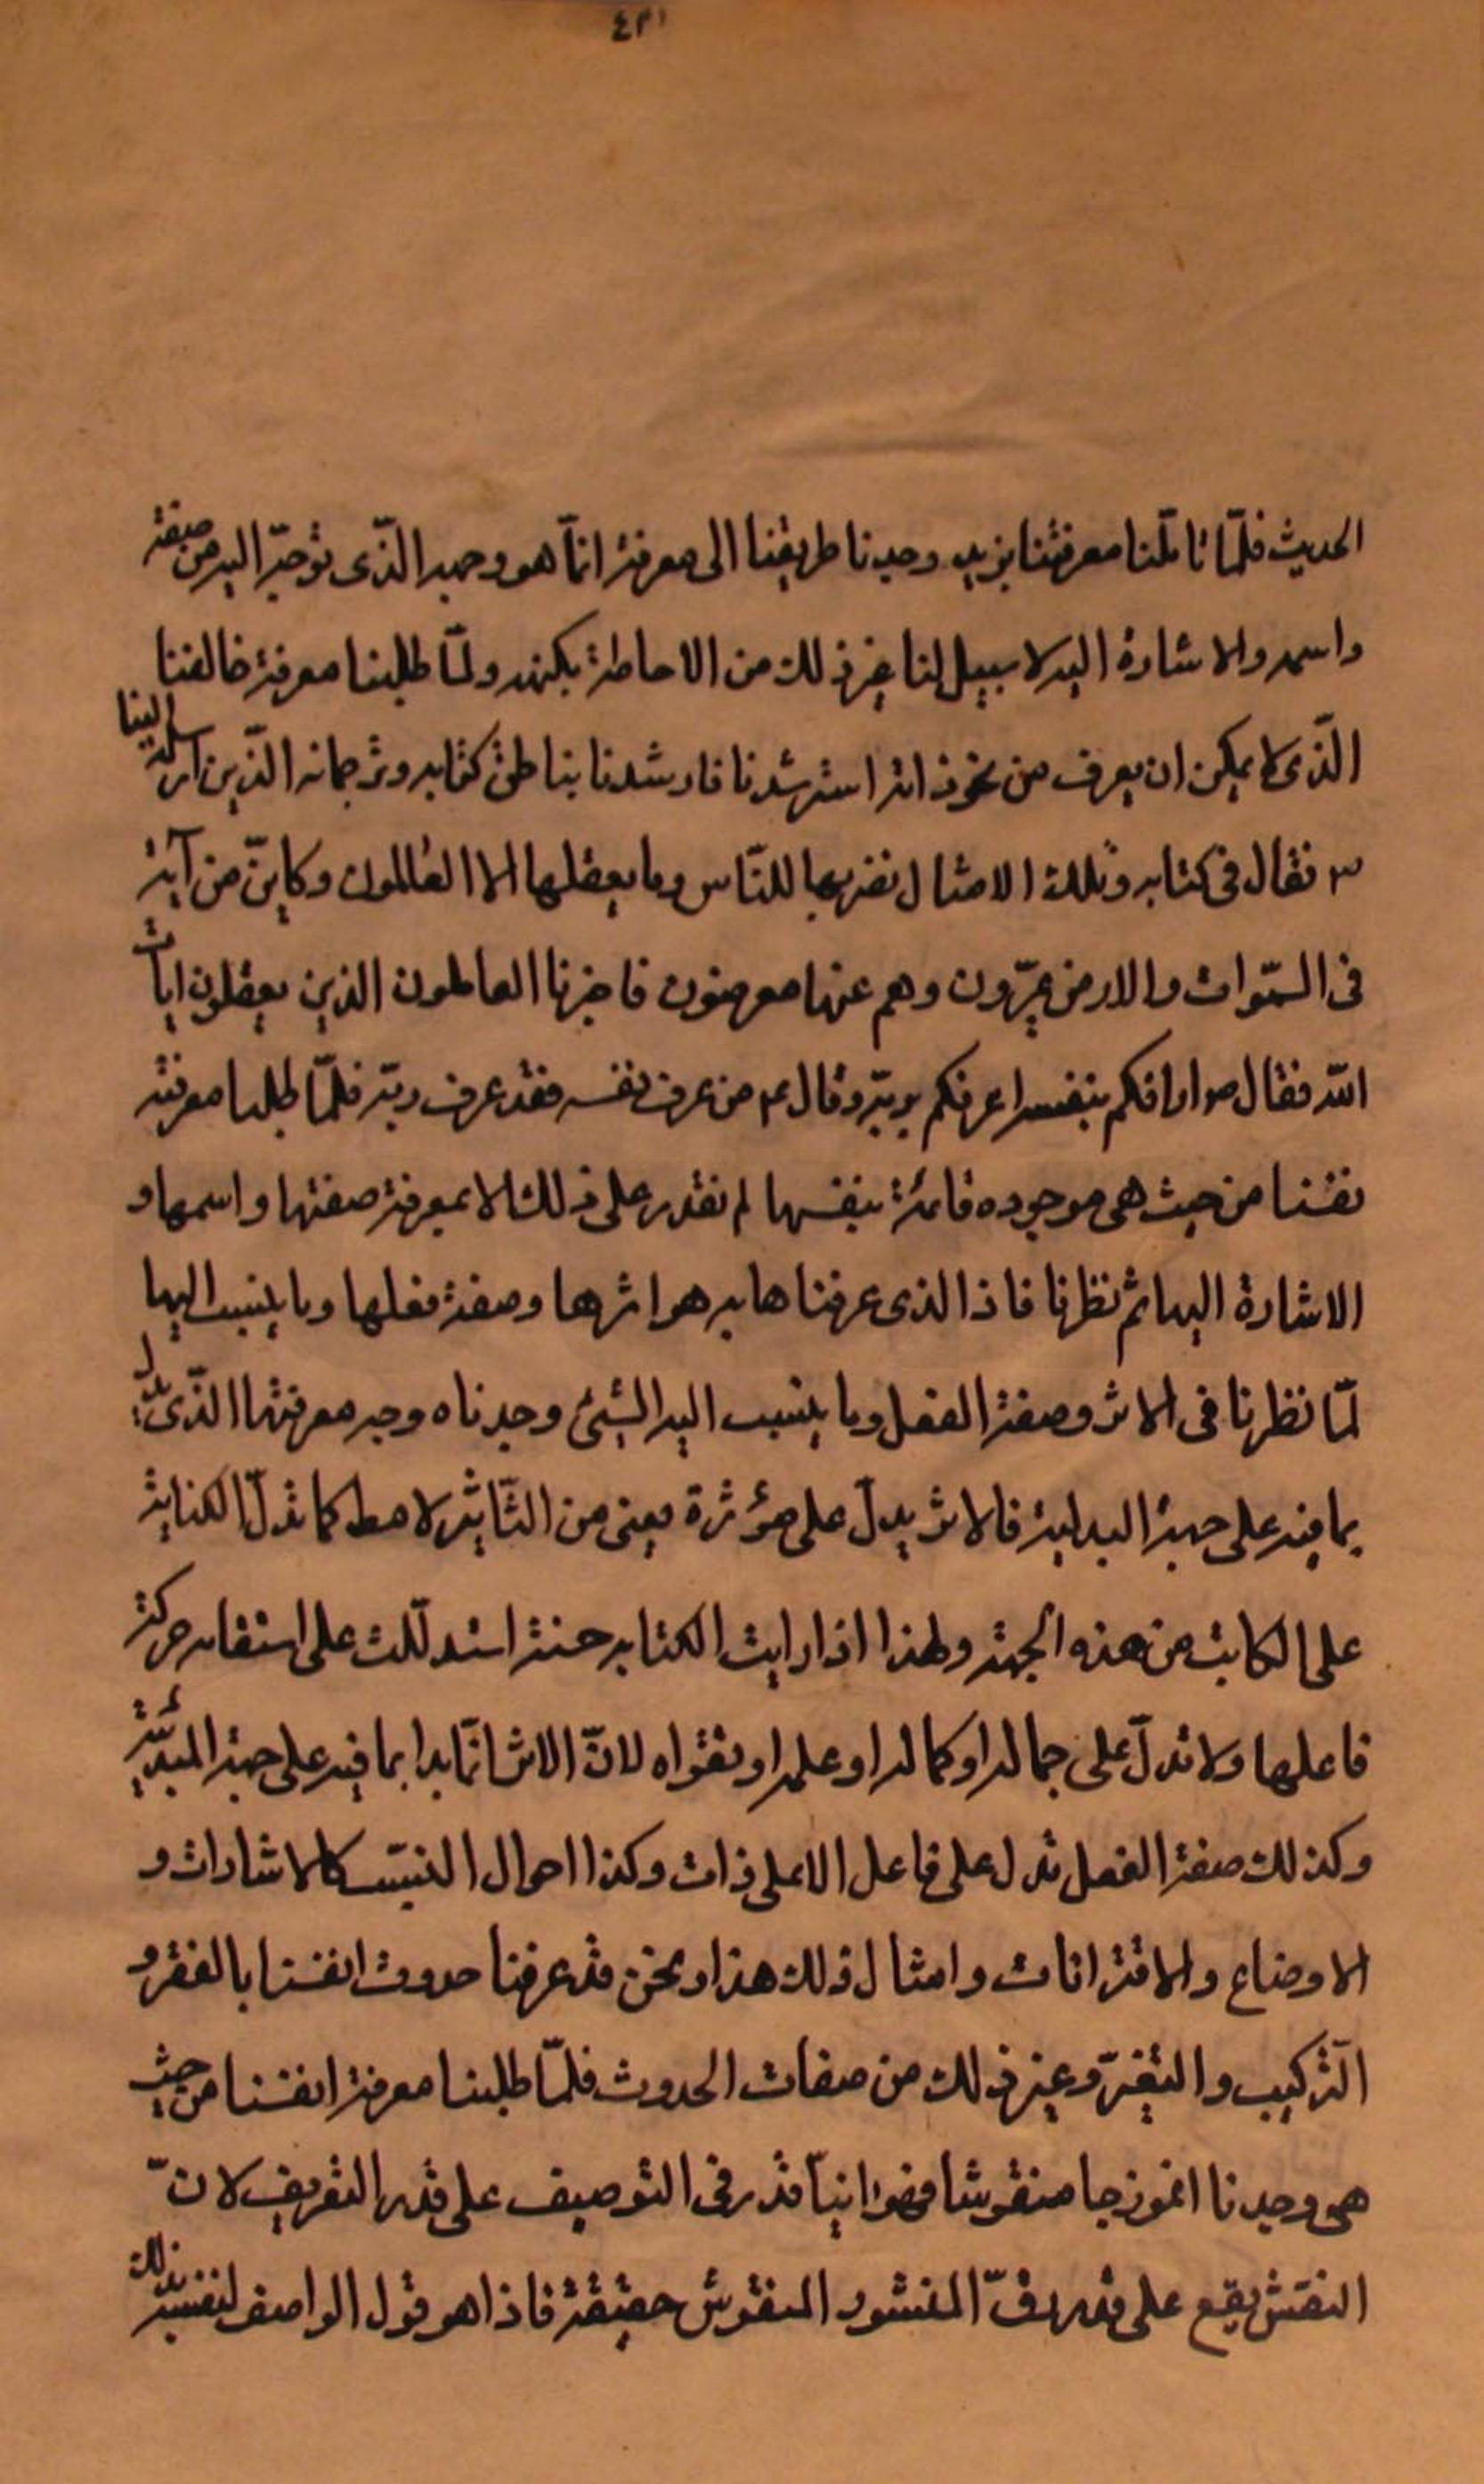 ٤٣١
الحديث فلمّا تاملّنا معرفتنا بزيد وجدنا طريقنا الى معرفته انمّا هو وجهه الذّى توجّه اليه من صفته
واسمه والاشارة اليه لا سبيل لنا غير ذلك من الاحاطة بكنهه ولمّا طلبنا معرفة خالقنا
الذّى لا يمكن ان يعرف من نحو ذاته استرشدنا فارشدنا بناطق كتابه وتراجمانه الذّين ارسله الينا
فقال فى كتابه وتلك الامثال نضربها للنّاس وما يعقلها الا العالمون وكاينّ من آية
فى السمّوات والارض يمرّون وهم عنها معرضون فاخبرنا العالمون الذين يعقلون ايات
الله فقال ص اعرفكم بنفسه اعرفكم بربّه وقال ع من عرف نفسه فقد عرف ربّه فلمّا طلبنا معرفة
نفسنا من حيث هى موجوده قائمة بنفسها لم نقدر على ذلك الا بمعرفة صفتها واسمها و
الاشارة اليها ثم نظرنا فاذا الذى عرفناها به هو اثرها وصفة فعلها وما ينسب اليها
لمّا نظرنا فى الاثر وصفة الفعل وما ينسب اليه الشئ وجدناه وجه معرفتها الذّى
بما فيه على جهة البداية فالاثر يدلّ على مؤثرة معنى من التّاثير لا مط كما تدلّ الكتابة
على الكاتب من هذه الجهة ولهذا اذا رايت الكتابه حسنة استدللّت على استقامه حركة
فاعلها ولا تدلّ على جماله او كماله او علمه او تقواه لانّ الاثر انمّا بدا بما فيه على جهة المبدئيّة
وكذلك صفة الفعل تدل على فاعل لا على ذات وكذا احوال النسّب كالاشارات و
الاوضاع والاقترانات وامثال ذلك هذا ونحن قد عرفنا حدوث انفسنا بالفقر و
التّركيب والتغيّر وغير ذلك من صفات الحدوث فلمّا طلبنا معرفة انفسنا من حيث
هى وجدنا انموزجا منقوشا فهوانيّا قدر فى التوصيف على قدر التعريف لانّ
النقش يقع على قدر المنشور المنقوش حقيقة فاذا هو قول الواصف لنفسه بذلك